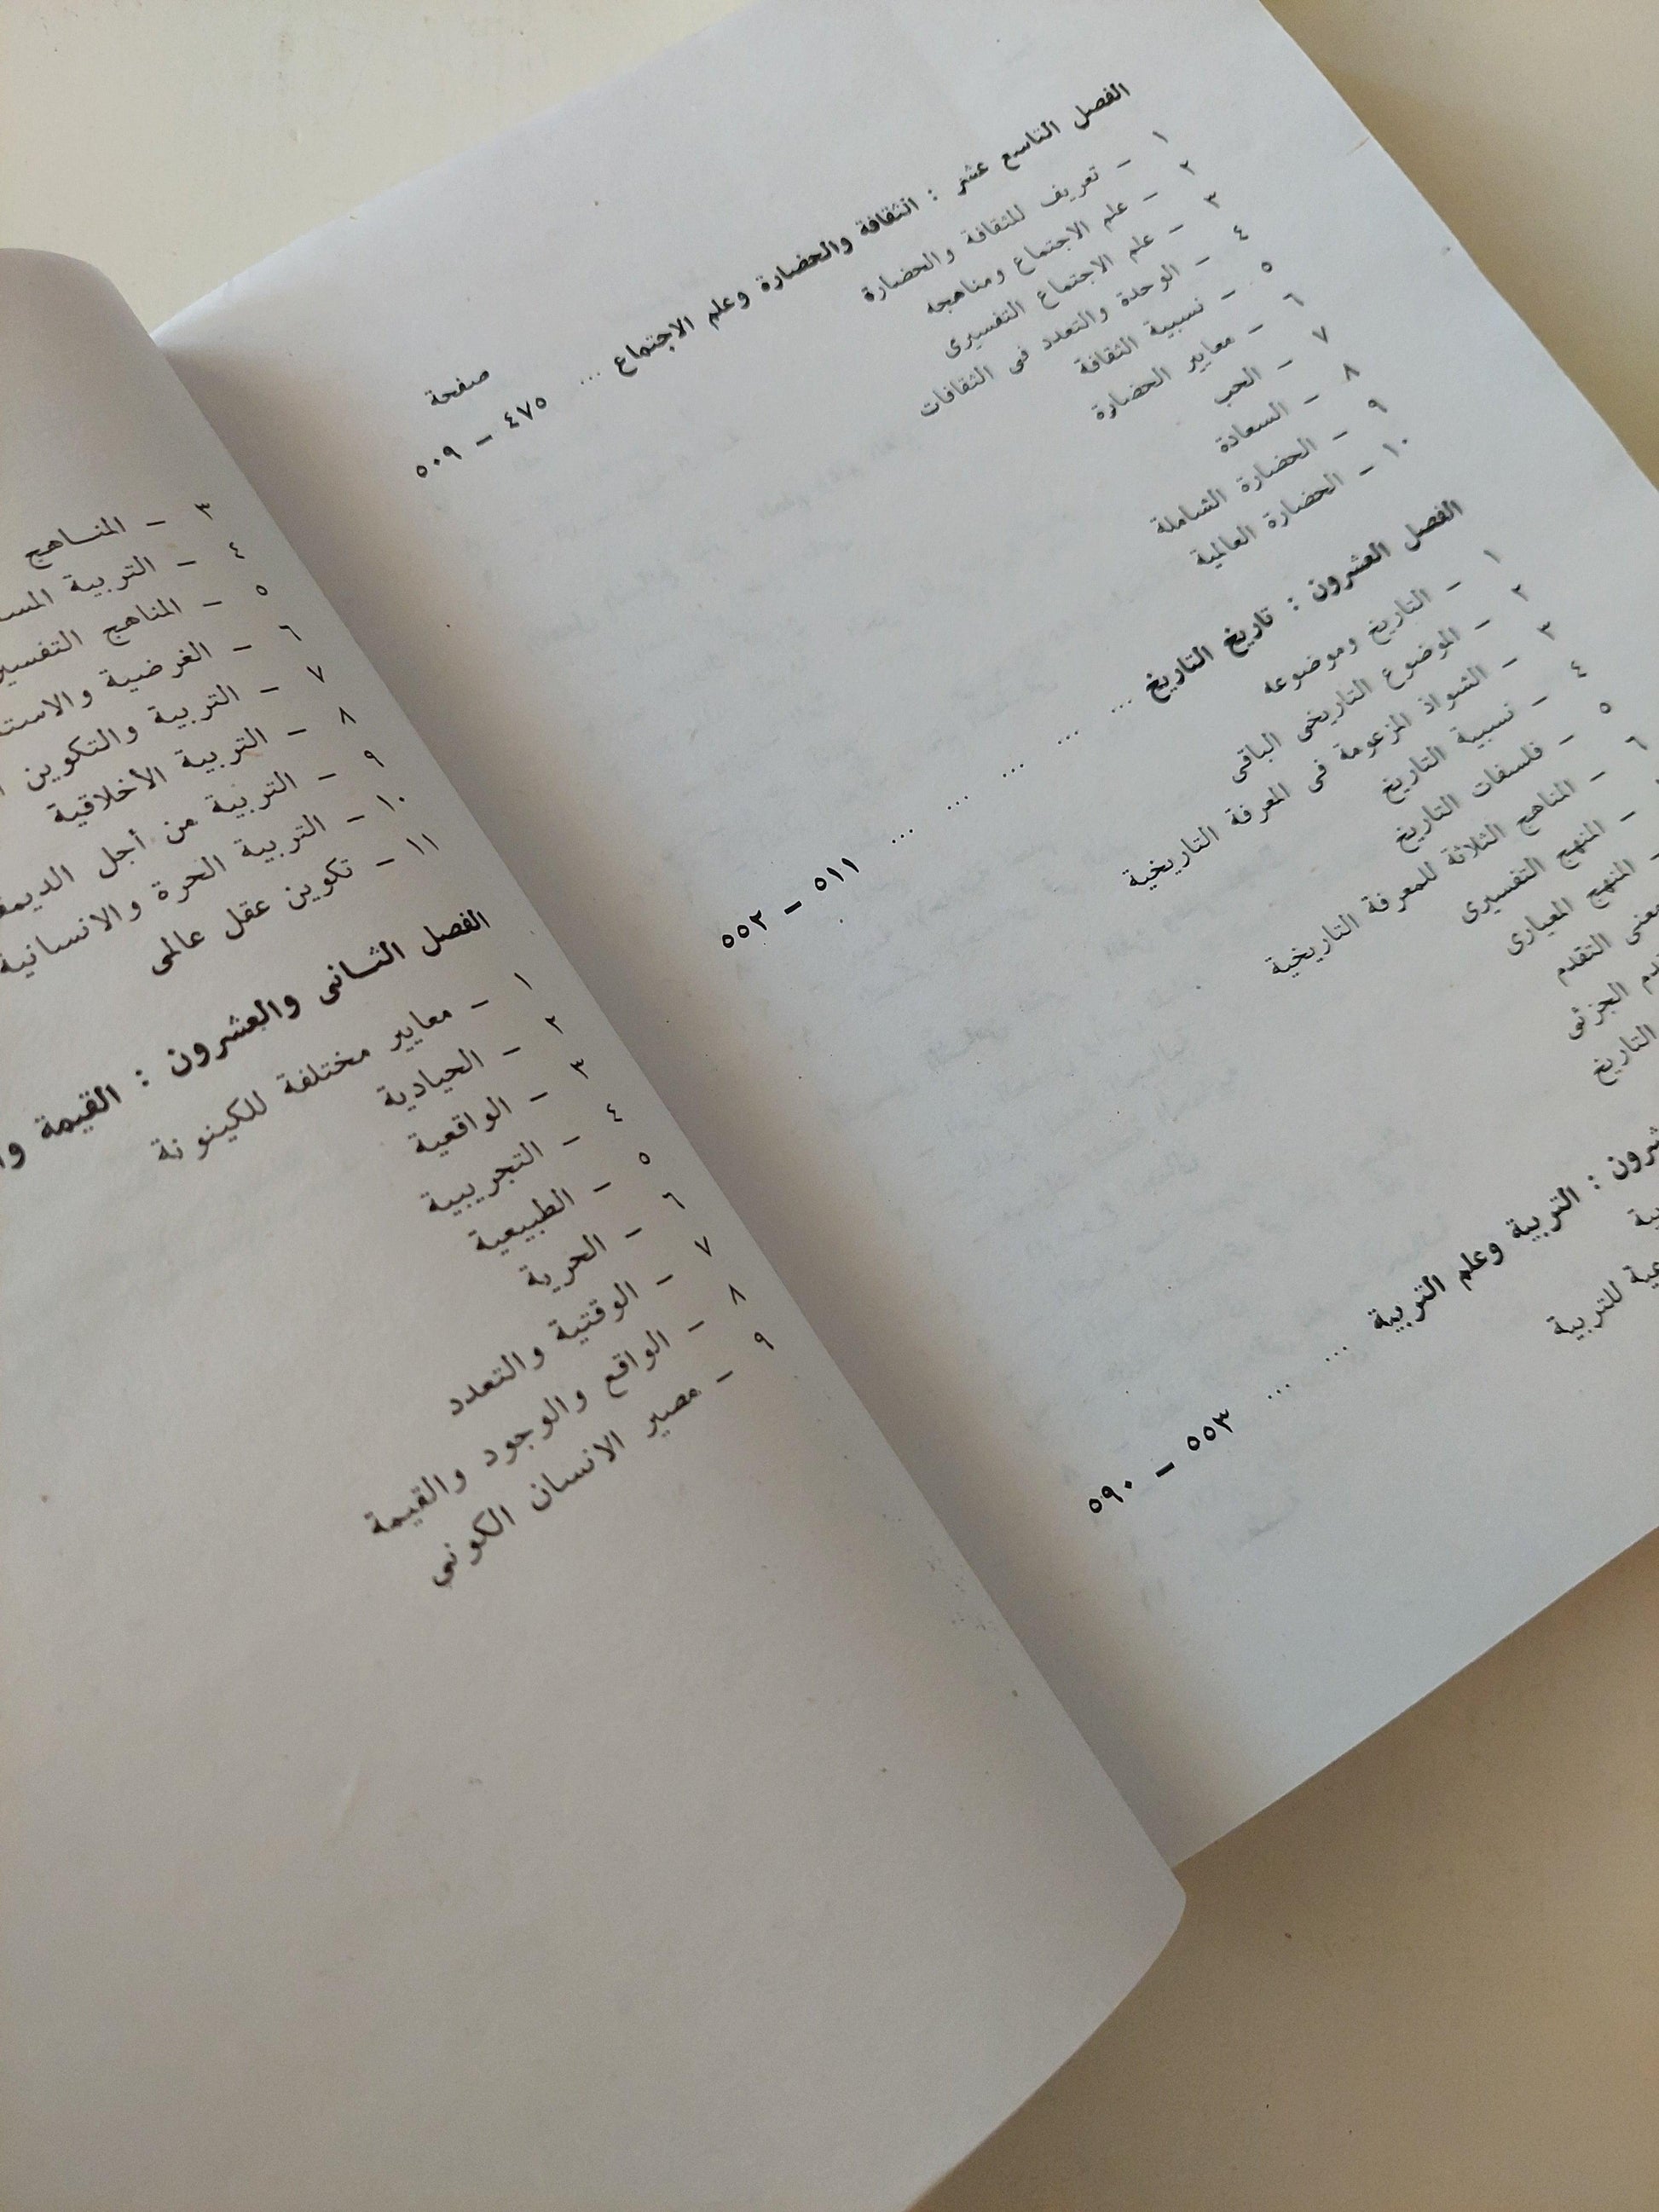 صفحة
الفصل التاسع عشر : الثقافة والحضارة وعلم الاجتماع ... ٤٧٥ – ٥٠٩
١ – تعريف للثقافة والحضارة
٢ – علم الاجتماع ومناهجه
٣ – علم الاجتماع التفسيرى
٤ – الوحدة والتعدد فى الثقافات
٥ – نسبية الثقافة
٦ – معايير الحضارة
٧ – الحب
٨ – السعادة
٩ – الحضارة الشاملة
١٠ – الحضارة العالمية
الفصل العشرون : تاريخ التاريخ ... ... ... ... ... ٥١١ – ٥٥٢
١ – التاريخ وموضوعه
٢ – الموضوع التاريخى الباقى
٣ – الشواذ المزعومة فى المعرفة التاريخية
٤ – نسبية التاريخ
٥ – فلسفات التاريخ
٦ – المناهج الثلاثة للمعرفة التاريخية
– المنهج التفسيرى
– المنهج المعيارى
التقدم
الجزئى
التاريخ
: التربية وعلم التربية ... ... ٥٥٣ – ٥٩٠
للتربية
٣ – المناهج
٤ – التربية
٥ – المناهج
٦ – الغرضية
٧ – التربية والتكوين
٨ – التربية الأخلاقية
٩ – التربية من أجل
١٠ – التربية الحرة والانسانية
١١ – تكوين عقل عالمى
الفصل الثانى والعشرون : القيمة
١ – معايير مختلفة للكينونة
٢ – الحيادية
٣ – الواقعية
٤ – التجريبية
٥ – الطبيعية
٦ – الحرية
٧ – الوقتية والتعدد
٨ – الواقع والوجود والقيمة
٩ – مصير الانسان الكونى